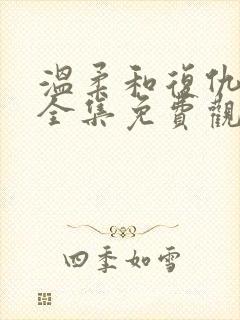 溫柔和復仇
全集免費觀
四季如雪